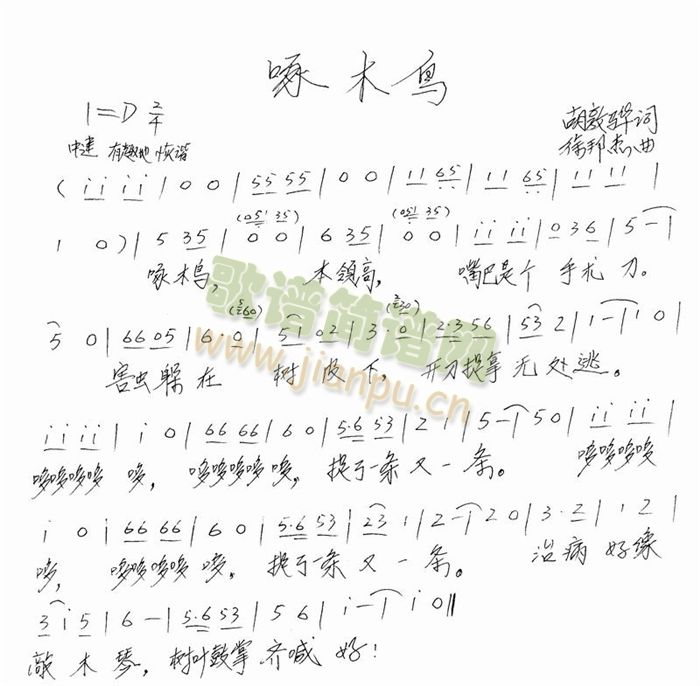 啄木鸟
1=D 2/4
中速 有趣地 诙谐
胡敦骅词
徐邦杰曲
( i i i i | 0 0 | 55 55 | 0 0 | 11 65 | 11 65 | 11 11 |
(051 35) (051 35)
1 0 ) | 5 35 | 0 0 | 6 35 | 0 0 | i i i i | 036 | 5 - |
啄木鸟, 本领高, 嘴巴是个 手术刀。
5 0 | 66 05 | 6·0 | 5 i 02 | 3·0 | 2·3 56 | 53 2 | 1 - | 1 0 |
害虫躲在 树皮下, 开刀捉拿无处逃。
i i i i | i 0 | 66 66 | 6 0 | 5·6 53 | 2 1 | 5 - | 5 0 | i i i i |
哆哆哆哆 哆, 哆哆哆哆 哆, 捉了一条又一条。 哆哆哆哆
i 0 | 66 66 | 6 0 | 5·6 53 | 23 1 | 2 - | 2 0 | 3·2 | 1 2 |
哆, 哆哆哆哆 哆, 捉了一条又一条。 治病好像
3 i 5 | 6 - | 5·6 53 | 5 6 | i - | i 0 ‖
敲木琴, 树叶鼓掌齐喊好!
歌谱简谱网
www.jianpu.cn